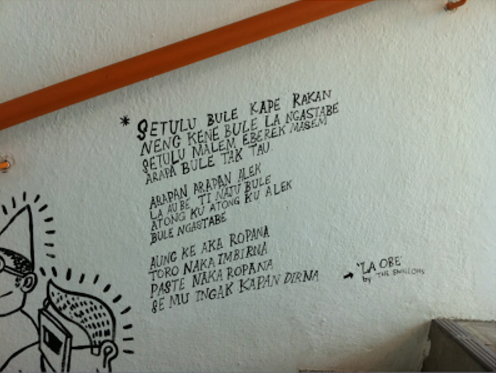 * SETULU BULE KAPE RAKAN
NENG KENE BULE LA NGASTABE
SETULU MALEM EBEREK MASEM
ARAPA BULE TAK TAU.
ARAPAN ARAPAN ALEK
LA AU BE TI NAJU BULE
ATONG KU ATONG KU ALEK
BULE NGASTABE
AUNG KE AKA ROPANA
TORO NAKA IMBIRNA
PASTE NAKA ROPANA
SE MU INGAK KAPAN DIRNA
→ 'LA OBE'
by THE SWALLOWS